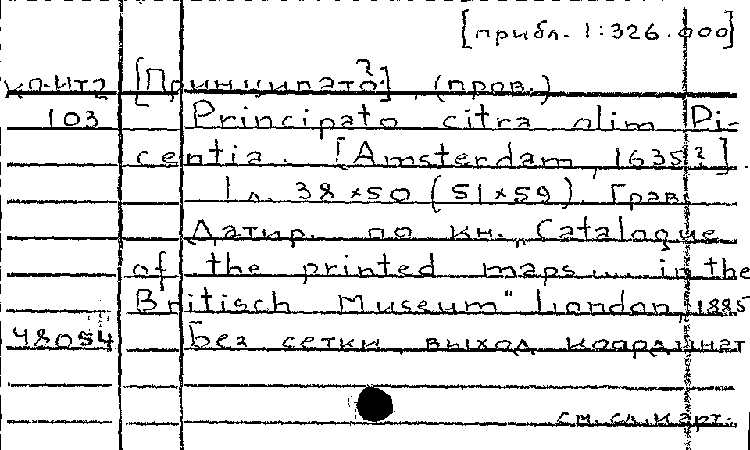 [прибл. 1:326.000]
КП-ИТ2 [Принципато?] (пров.)
103 Principato citra olim Pi-
centia. [Amsterdam, 1635?].
1 л. 38×50 (51×59). Грав.
Датир. по кн. „Catalogue
of the printed maps.... in the
Britisch Museum" London, 1885
48054 Без сетки, выход координат
см. сл. карт.